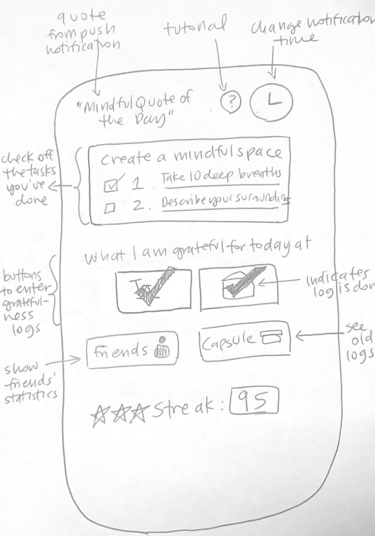 quote
from push
notification
tutorial
change notification
time
"Mindful Quote of
the Day"
?
check off
the tasks
you've
done
Create a mindful space
1. Take 10 deep breaths
2. Describe your surrounding
What I am grateful for today at
buttons
to enter
grateful-
ness
logs
indicates
log is done
Friends
Capsule
see
old
logs
show
friends'
statistics
Streak: 95